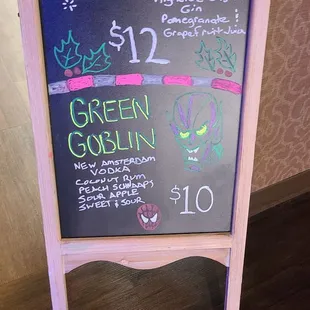 Gin
Pomegranate !
Grapefruit Juice
$12
GREEN
GOBLIN
NEW AMSTERDAM
VODKA
COCONUT RUM
PEACH SCHNAPPS
SOUR APPLE
SWEET & SOUR
$10